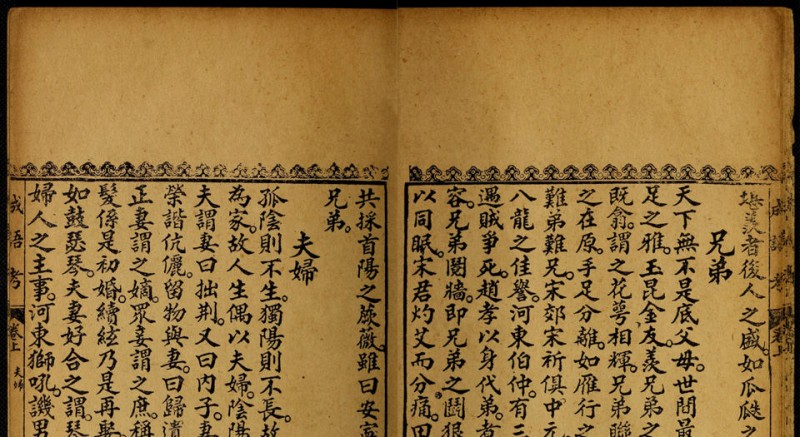 堪羨者後人之盛如瓜瓞之
兄弟
天下無不是底父母。世間最
足之雅。玉昆金友。羨兄弟之
既翕。謂之花萼相輝。兄弟聯
之在原。手足分離。如雁行之
難弟難兄。宋郊宋祁俱中元
八龍之佳譽。河東伯仲。有三
遇賊爭死。趙孝以身代弟。
容。兄弟鬩牆。即兄弟之鬪狠
以同眠。宋君灼艾而分痛。田
共採首陽之蕨薇。雖曰安寧
兄弟。
夫婦
孤陰則不生。獨陽則不長。故
為家。故人生偶以夫婦。陰陽
夫謂妻曰拙荆。又曰内子。妻
榮諧伉儷。留物與妻。曰歸遺
正妻謂之嫡。眾妾謂之庶。稱
髮係是初婚。續絃乃是再娶
如鼓瑟琴。夫妻好合之謂。琴
婦人之主事。河東獅吼。譏男
成語考 卷上 夫婦